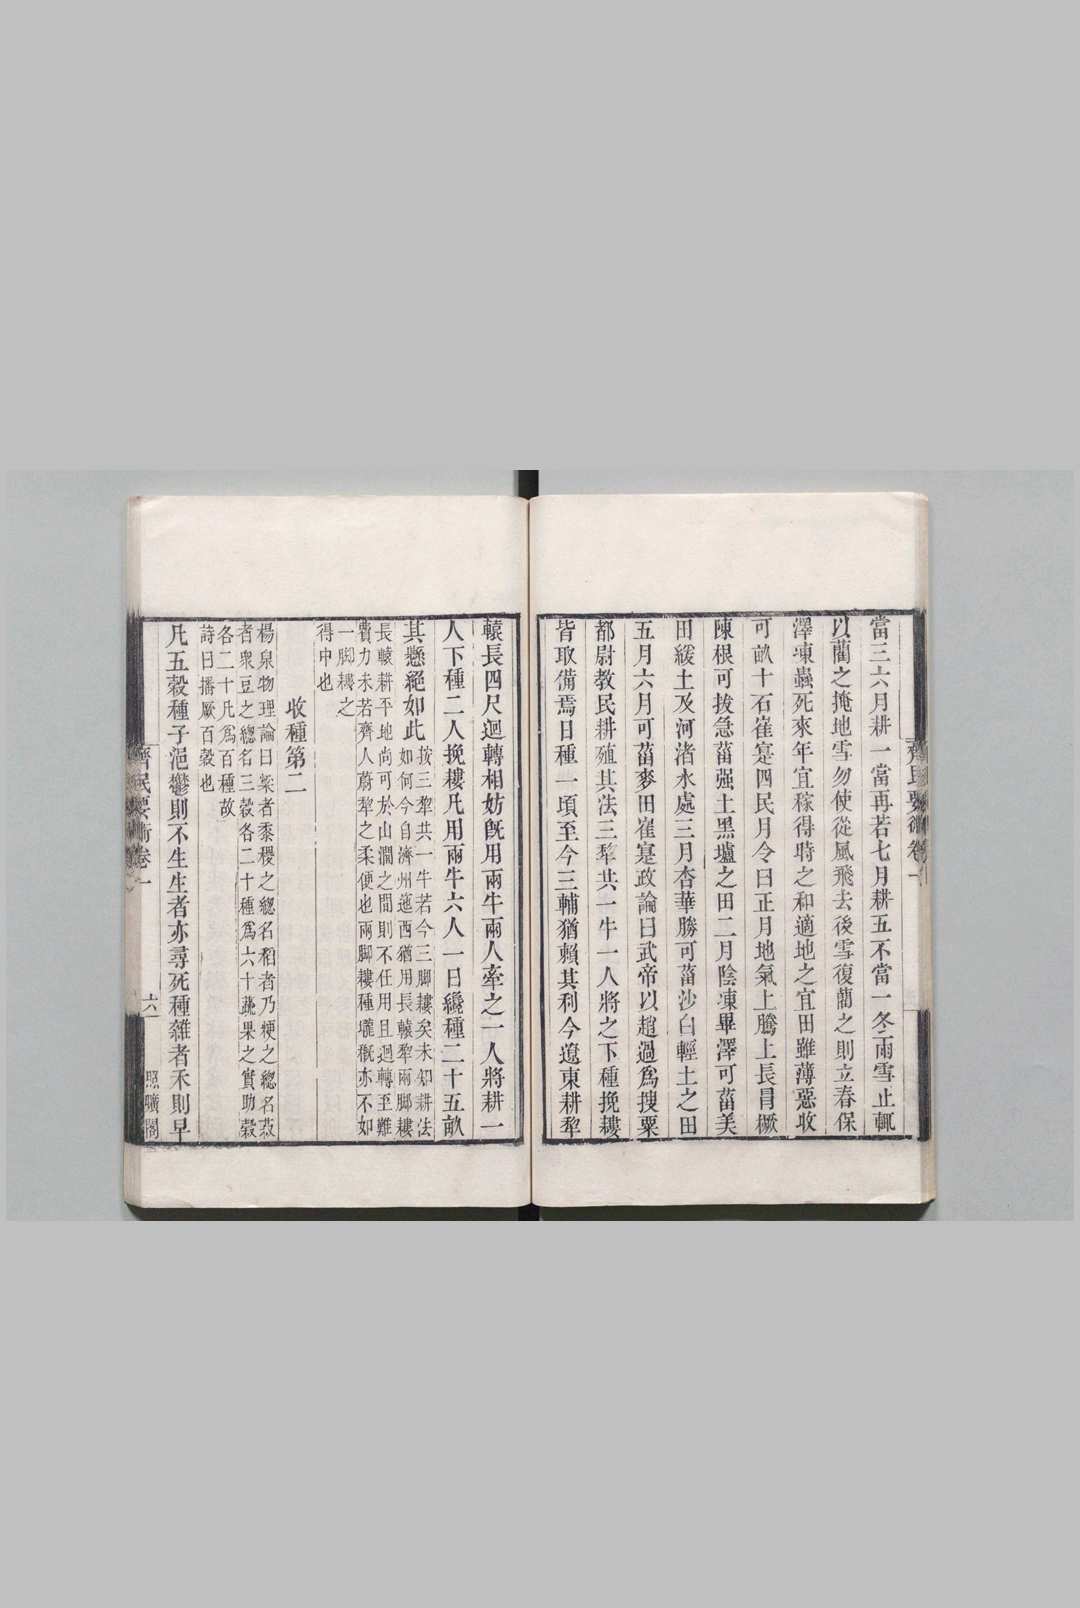 當三六月耕一當再若七月耕五不當一冬雨雪止輒
以藺之掩地雪勿使從風飛去後雪復藺之則立春保
澤凍蟲死來年宜稼得時之和適地之宜田雖薄惡收
可畝十石崔寔四民月令曰正月地氣上騰土長冒橛
陳根可拔急菑强土黑壚之田二月陰凍畢澤可菑美
田緩土及河渚水處三月杏華勝可菑沙白輕土之田
五月六月可菑麥田崔寔政論曰武帝以趙過爲搜粟
都尉教民耕殖其法三犂共一牛一人將之下種挽耬
皆取備焉日種一頃至今三輔猶賴其利今遼東耕犂
轅長四尺迴轉相妨旣用兩牛兩人牽之一人將耕一
人下種二人挽耬凡用兩牛六人一日纔種二十五畝
其懸絕如此按三犂共一牛若今三脚耬矣未知耕法
如何今自濟州迤西猶用長轅犂兩脚耬
長轅耕平地尚可於山澗之間則不任用且迴轉至難
費力未若齊人蔚犂之柔便也兩脚耬種壠概亦不如
一脚耬之
得中也
收種第二
楊泉物理論曰粱者黍稷之總名稻者乃粳之總名菽
者衆豆之總名三穀各二十種爲六十蔬果之實助穀
各二十凡爲百種故
詩曰播厥百穀也
凡五穀種子浥鬱則不生生者亦尋死種雜者禾則早
齊民要術卷一
六
照曠閣